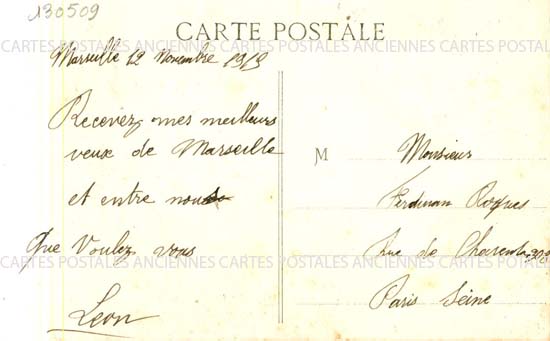 130509
CARTE POSTALE
CARTES POSTALES ANCIENNES CARTES POSTALES ANCIENNES CARTES POSTALES
Marseille 12 Novembre 1919
Recevez mes meilleurs
veux de Marseille
et entre nous
que Voulez vous
Leon
M Monsieur
Ferdinan Roques
Rue de Charenton
Paris Seine
CARTES POSTALES ANCIENNES CARTES POSTALES ANCIENNES CARTES POSTALES